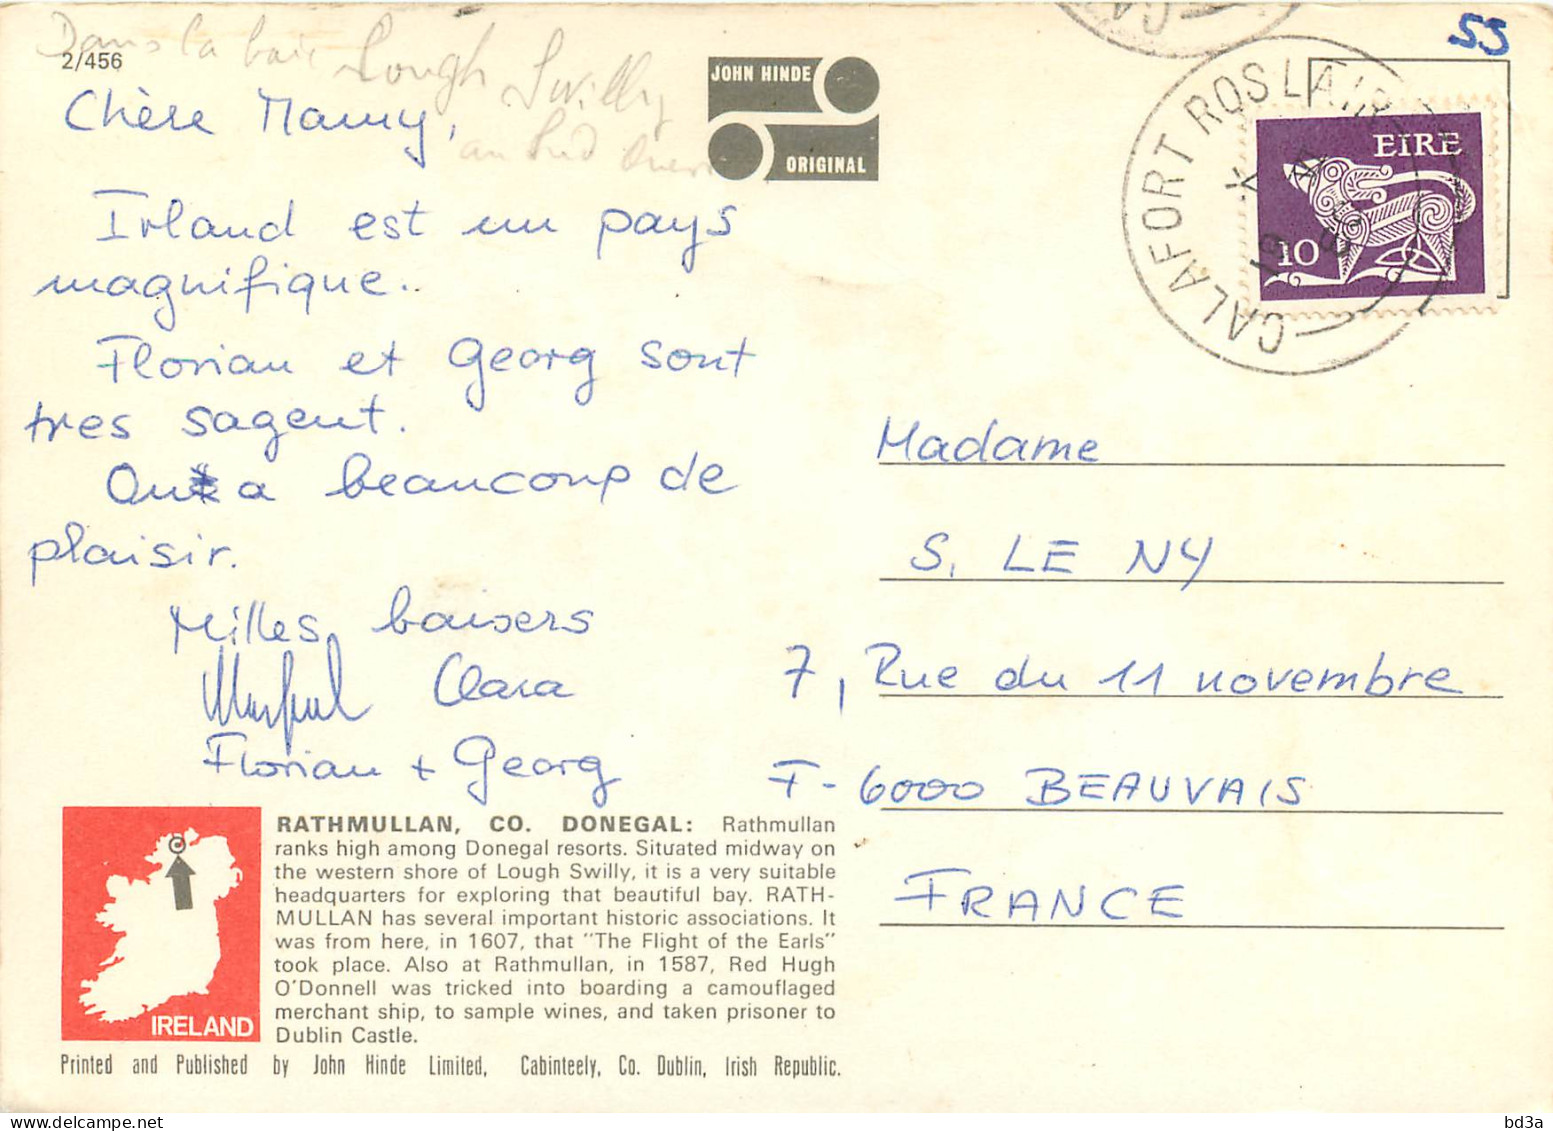 Dans la baie Lough Swilly
au Sud
2/456
JOHN HINDE
ORIGINAL
55
CALAFORT ROSLÁIR
EIRE
10
Chère Mamy,
Irland est un pays
magnifique.
Florian et Georg sont
tres sagent.
On a beaucoup de
plaisir.
Milles baisers
Clara
Florian + Georg
Madame
S. LE NY
7, Rue du 11 novembre
F-6000 BEAUVAIS
FRANCE
IRELAND
RATHMULLAN, CO. DONEGAL: Rathmullan
ranks high among Donegal resorts. Situated midway on
the western shore of Lough Swilly, it is a very suitable
headquarters for exploring that beautiful bay. RATH-
MULLAN has several important historic associations. It
was from here, in 1607, that "The Flight of the Earls"
took place. Also at Rathmullan, in 1587, Red Hugh
O'Donnell was tricked into boarding a camouflaged
merchant ship, to sample wines, and taken prisoner to
Dublin Castle.
Printed and Published by John Hinde Limited, Cabinteely, Co. Dublin, Irish Republic.
bd3a